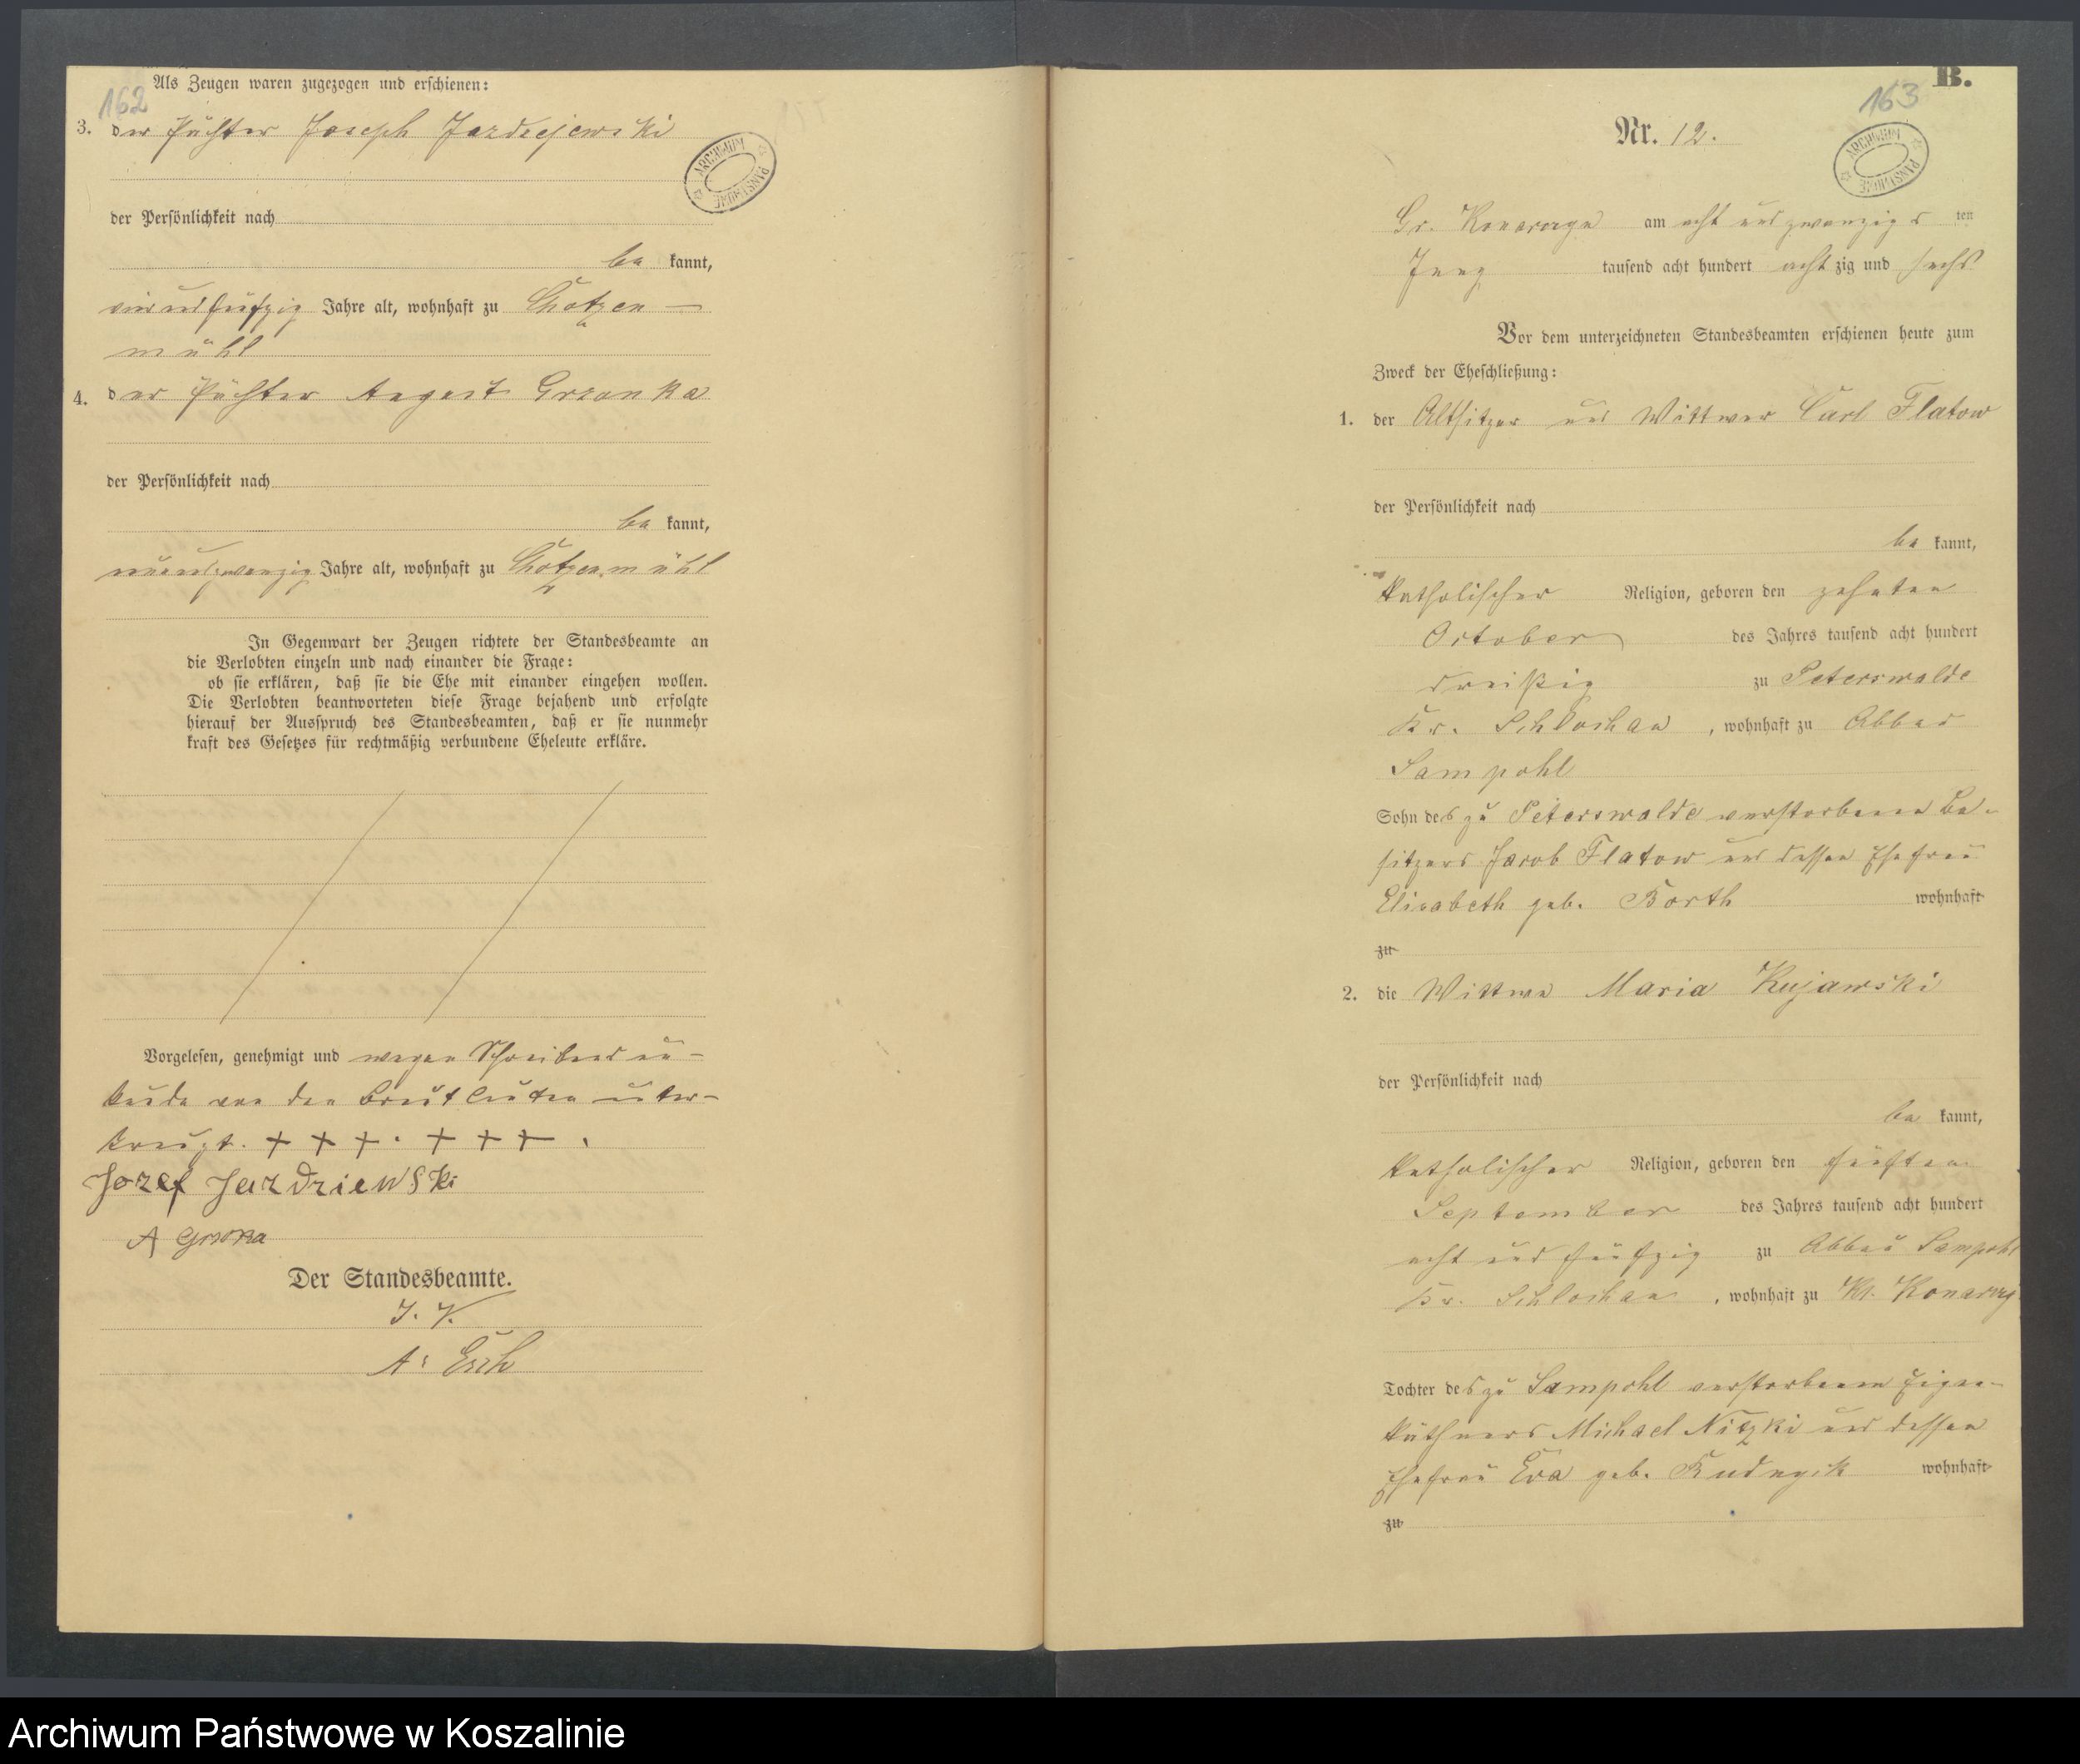 Als Zeugen waren zugezogen und erschienen:
162
3. der Pächter Joseph Jazdzejewski
ARCHIWUM PAŃSTWOWE
der Persönlichkeit nach
be kannt,
ein und fünfzig Jahre alt, wohnhaft zu Chotzen-
mühl
4. der Pächter August Grzonka
der Persönlichkeit nach
be kannt,
neunundzwanzig Jahre alt, wohnhaft zu Chotzenmühl
In Gegenwart der Zeugen richtete der Standesbeamte an
die Verlobten einzeln und nach einander die Frage:
ob sie erklären, daß sie die Ehe mit einander eingehen wollen.
Die Verlobten beantworteten diese Frage bejahend und erfolgte
hierauf der Ausspruch des Standesbeamten, daß er sie nunmehr
kraft des Gesetzes für rechtmäßig verbundene Eheleute erkläre.
Vorgelesen, genehmigt und wegen Schreibensun-
kunde von den Brautleuten unter-
kreuzt. + + + . + + + .
Jozef Jazdziewski
A
Der Standesbeamte.
I. V.
A. Esch
B.
163
Nr. 12.
ARCHIWUM PAŃSTWOWE
Gr. Konarczyn am acht und zwanzigs ten
Juny tausend acht hundert acht zig und sechs
Vor dem unterzeichneten Standesbeamten erschienen heute zum
Zweck der Eheschließung:
1. der Altsitzer und Wittwer Carl Flatow
der Persönlichkeit nach
be kannt,
katholischer Religion, geboren den zehnten
October des Jahres tausend acht hundert
dreißig zu Peterswalde
Kr. Schlochau, wohnhaft zu Abbau
Sampohl
Sohn des zu Peterswalde verstorbenen Be-
sitzers Jacob Flatow und dessen Ehefrau
Elisabeth geb. Borth wohnhaft
zu
2. die Wittwe Maria Kujawski
der Persönlichkeit nach
be kannt,
katholischer Religion, geboren den fünften
September des Jahres tausend acht hundert
acht und fünfzig zu Abbau Sampohl
Kr. Schlochau, wohnhaft zu Kl. Konarczyn
Tochter des zu Sampohl verstorbenen Eigen-
käthners Michael Nitzki und dessen
Ehefrau Eva geb. wohnhaft
zu
Archiwum Państwowe w Koszalinie